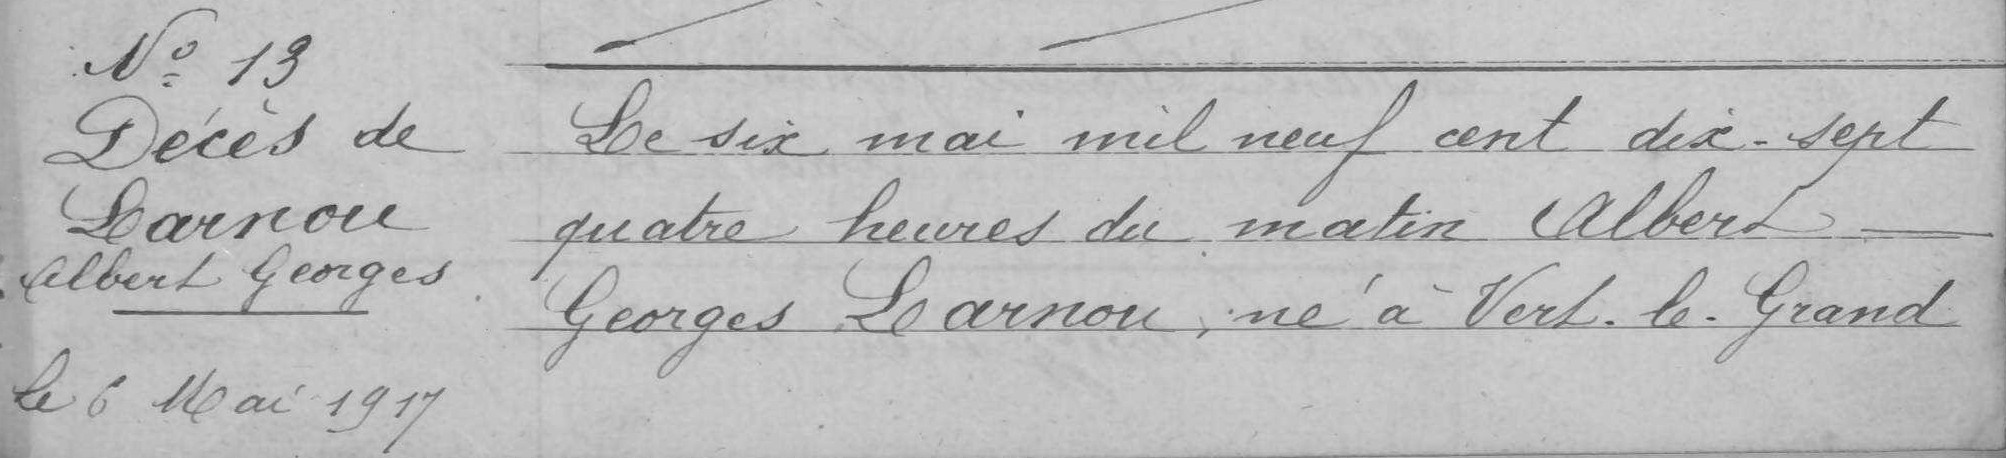 N° 13
Décès de
Larnou
Albert Georges
le 6 Mai 1917
Le six mai mil neuf cent dix-sept
quatre heures du matin Albert
Georges Larnou, né à Vert-le-Grand